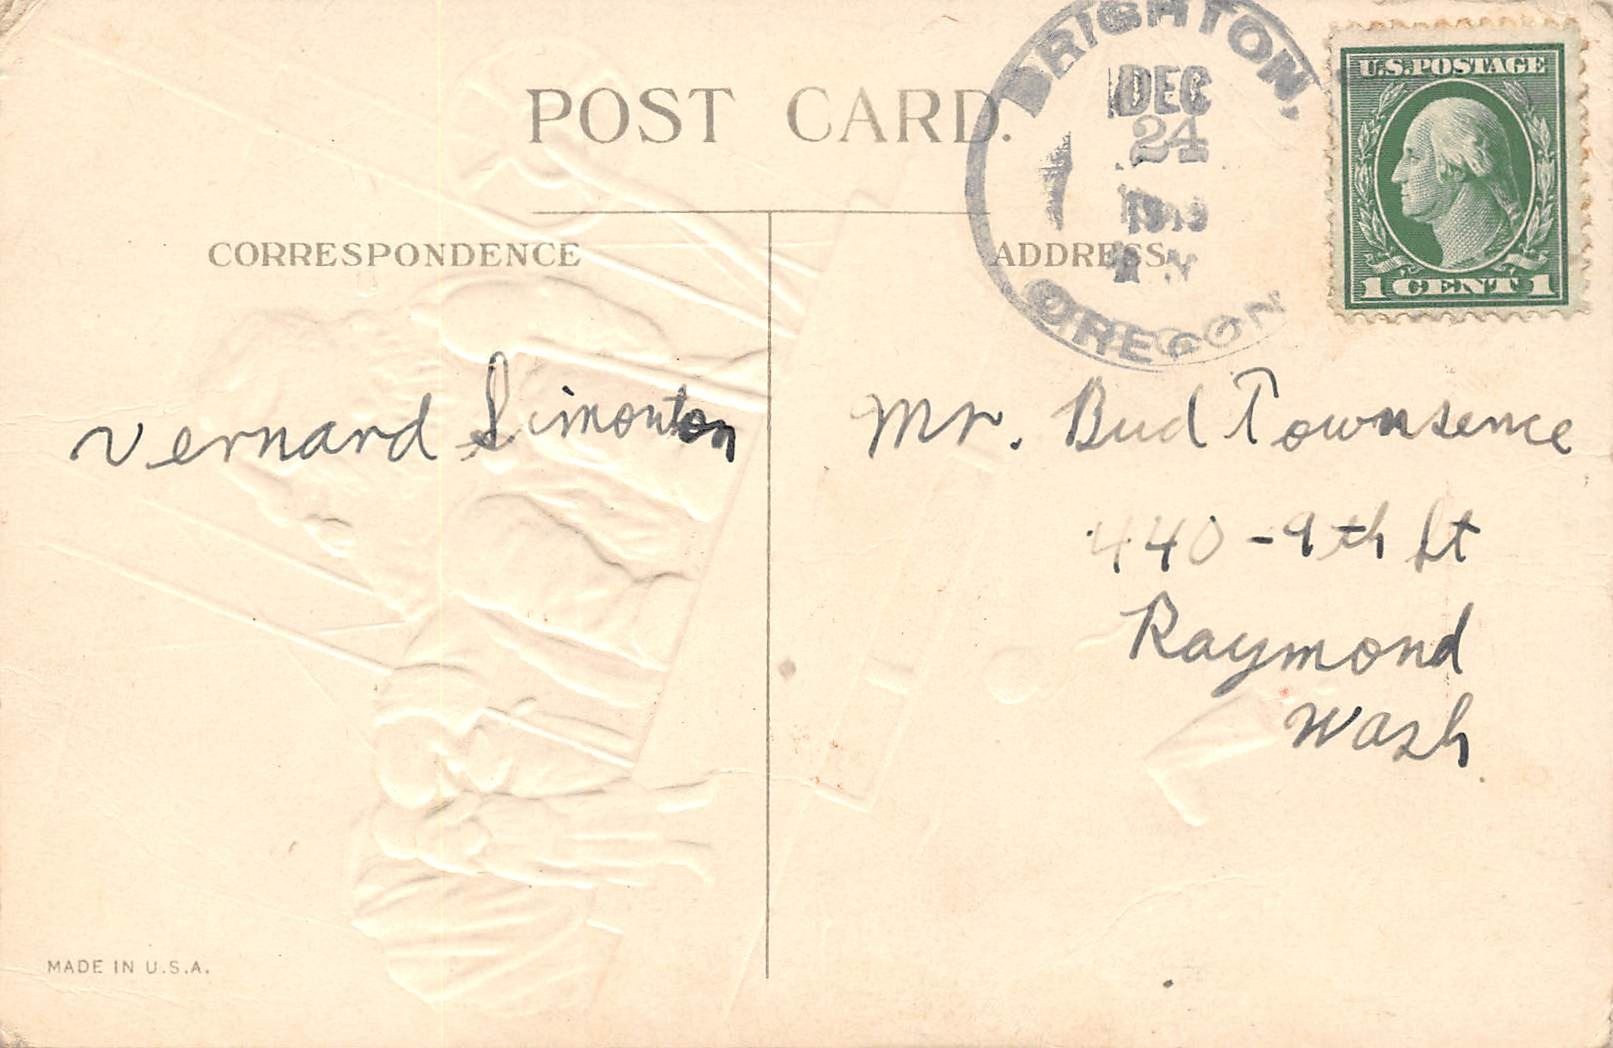 POST CARD.
BRIGHTON,
DEC
24
OREGON
U.S. POSTAGE
1 CENT 1
CORRESPONDENCE
ADDRESS
Vernard Simonton
Mr. Bud Townsence
440 - 9th St
Raymond
Wash
MADE IN U.S.A.